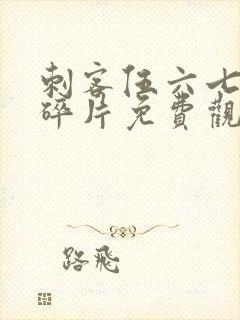 刺客伍六七
碎片免費觀
路飛